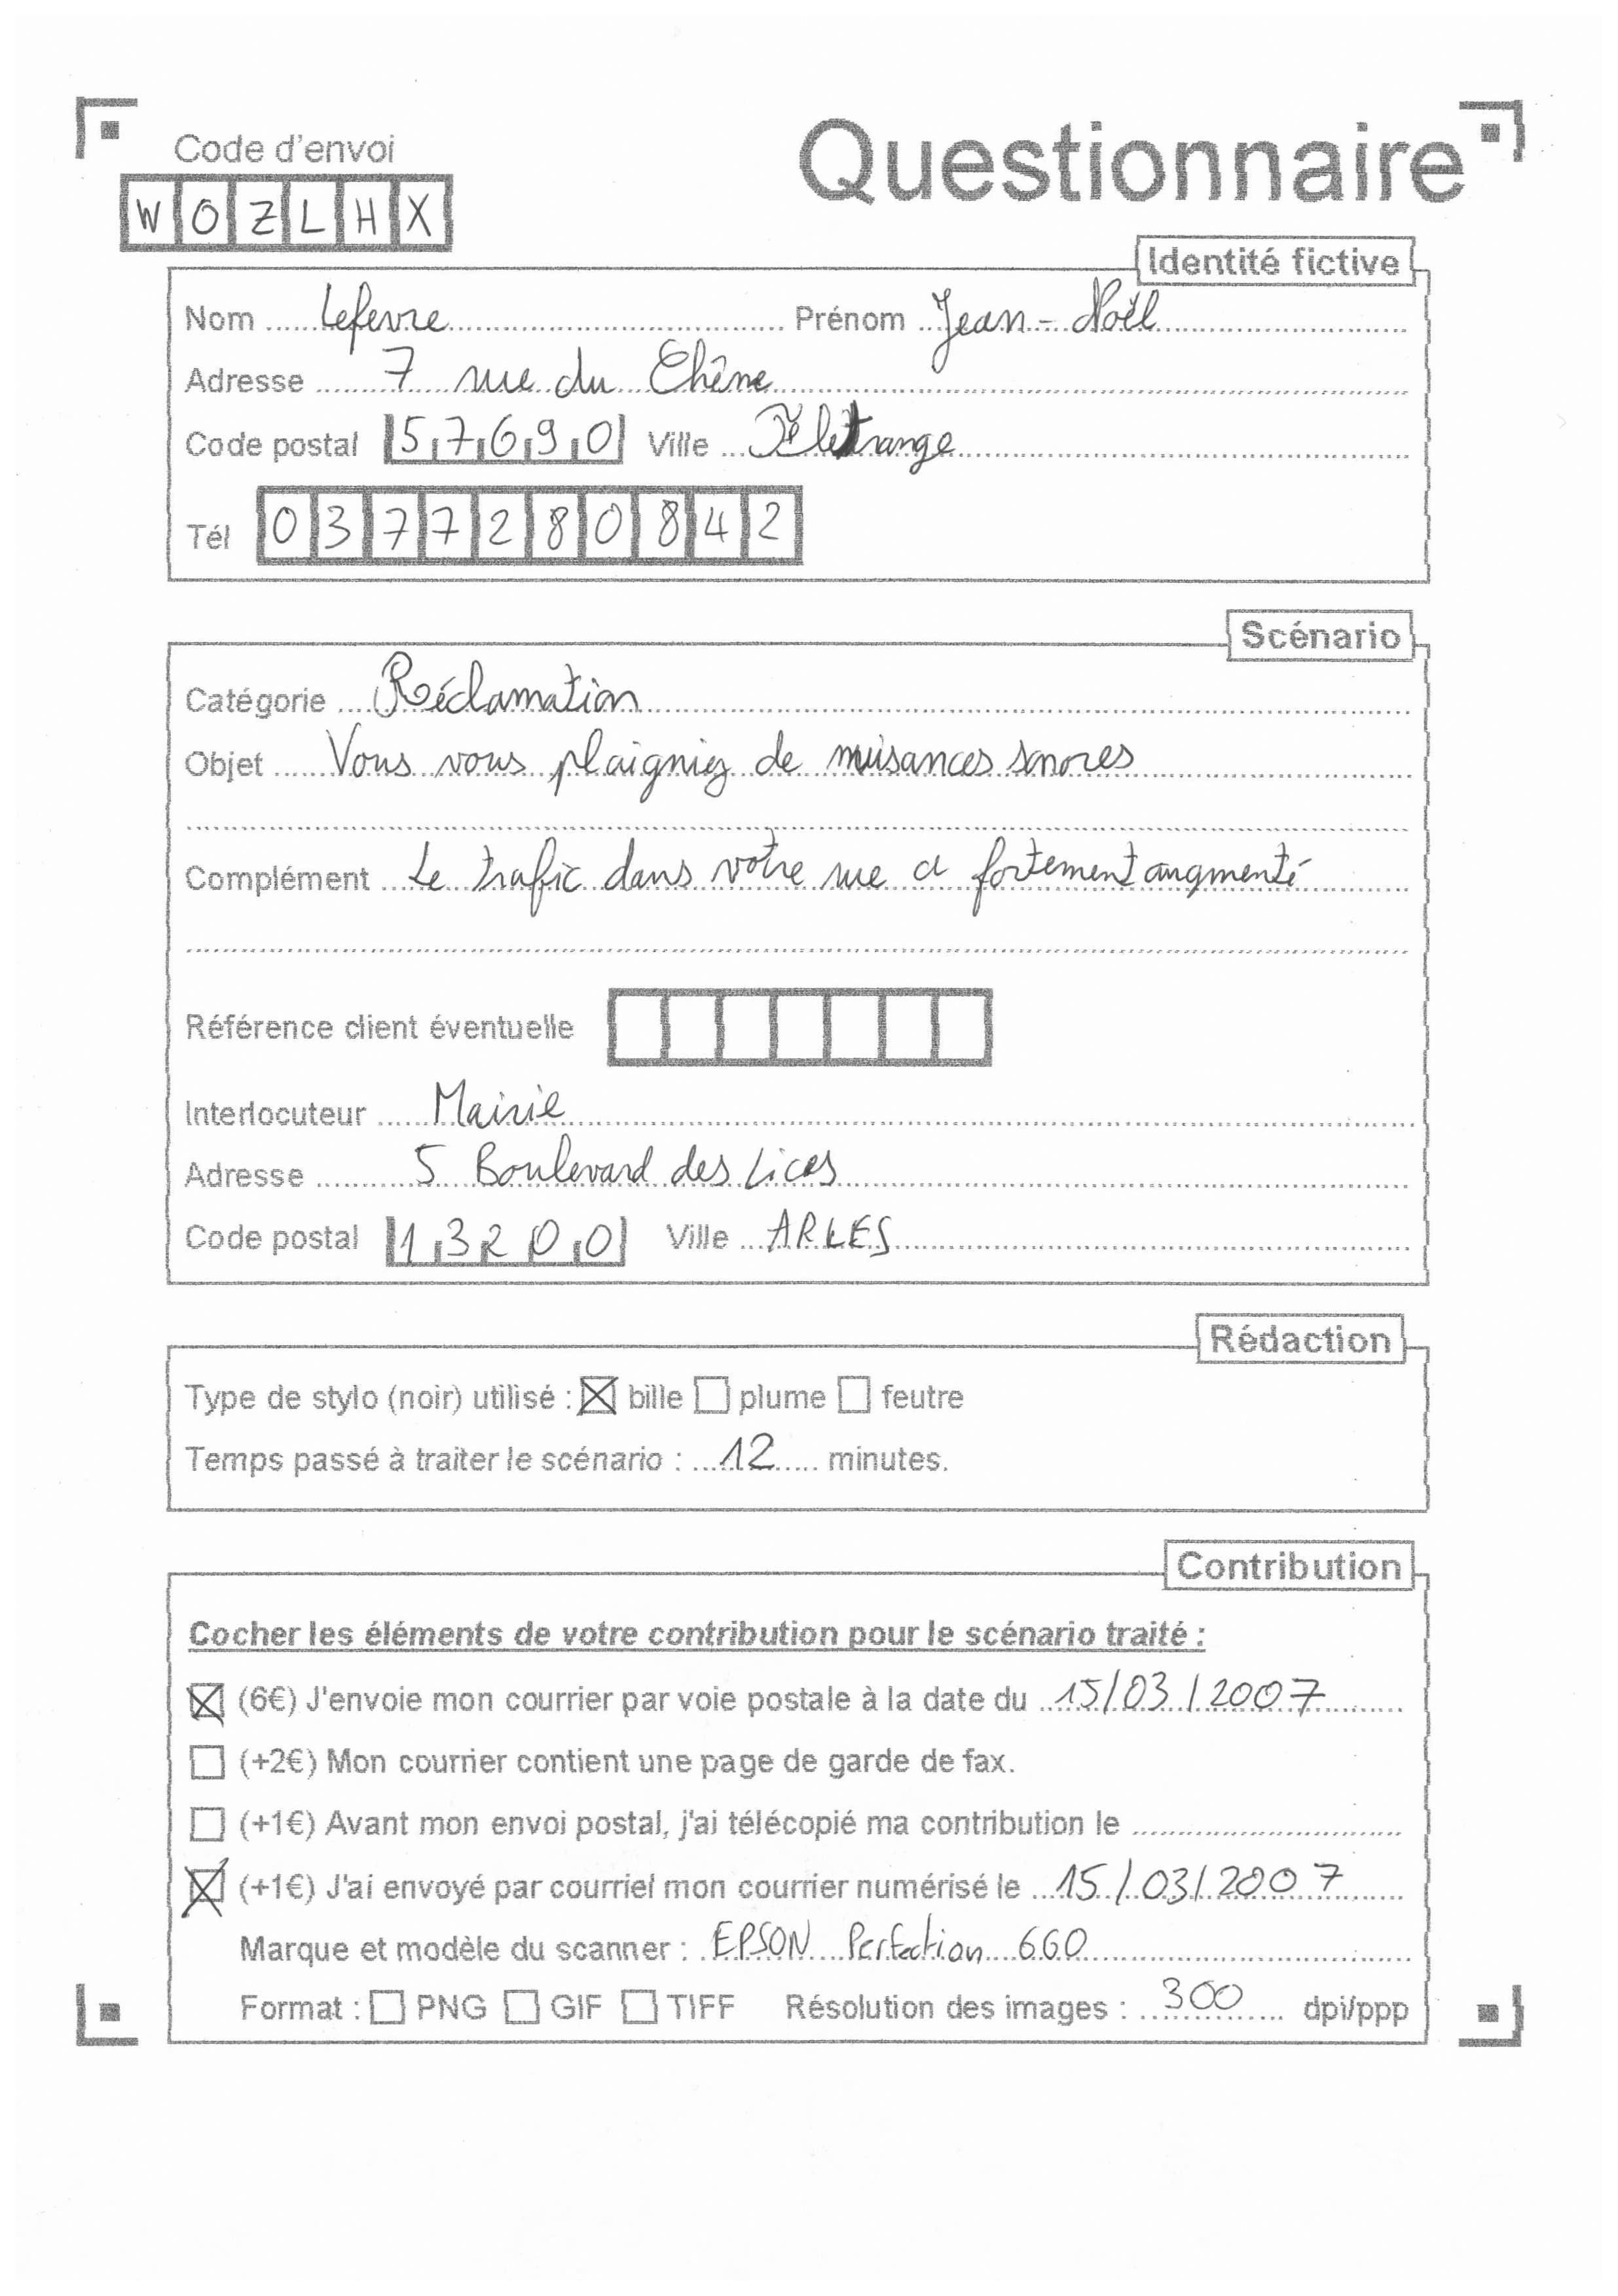 Code d'envoi
Questionnaire
WOZLHX
Identité fictive
Nom Lefevre Prénom Jean-Noël
Adresse 7 rue du Chêne
Code postal 57690 Ville
Tél 0377280842
Scénario
Catégorie Réclamation
Objet Vous vous plaigniez de nuisances sonores
Complément Le trafic dans votre rue a fortement augmenté
Référence client éventuelle
Interlocuteur Mairie
Adresse 5 Boulevard des Lices
Code postal 13200 Ville ARLES
Rédaction
Type de stylo (noir) utilisé : ☒ bille ☐ plume ☐ feutre
Temps passé à traiter le scénario : 12 minutes.
Contribution
Cocher les éléments de votre contribution pour le scénario traité :
☒ (6€) J'envoie mon courrier par voie postale à la date du 15/03/2007
☐ (+2€) Mon courrier contient une page de garde de fax.
☐ (+1€) Avant mon envoi postal, j'ai télécopié ma contribution le
☒ (+1€) J'ai envoyé par courriel mon courrier numérisé le 15/03/2007
Marque et modèle du scanner : EPSON Perfection 660
Format : ☐ PNG ☐ GIF ☐ TIFF Résolution des images : 300 dpi/ppp